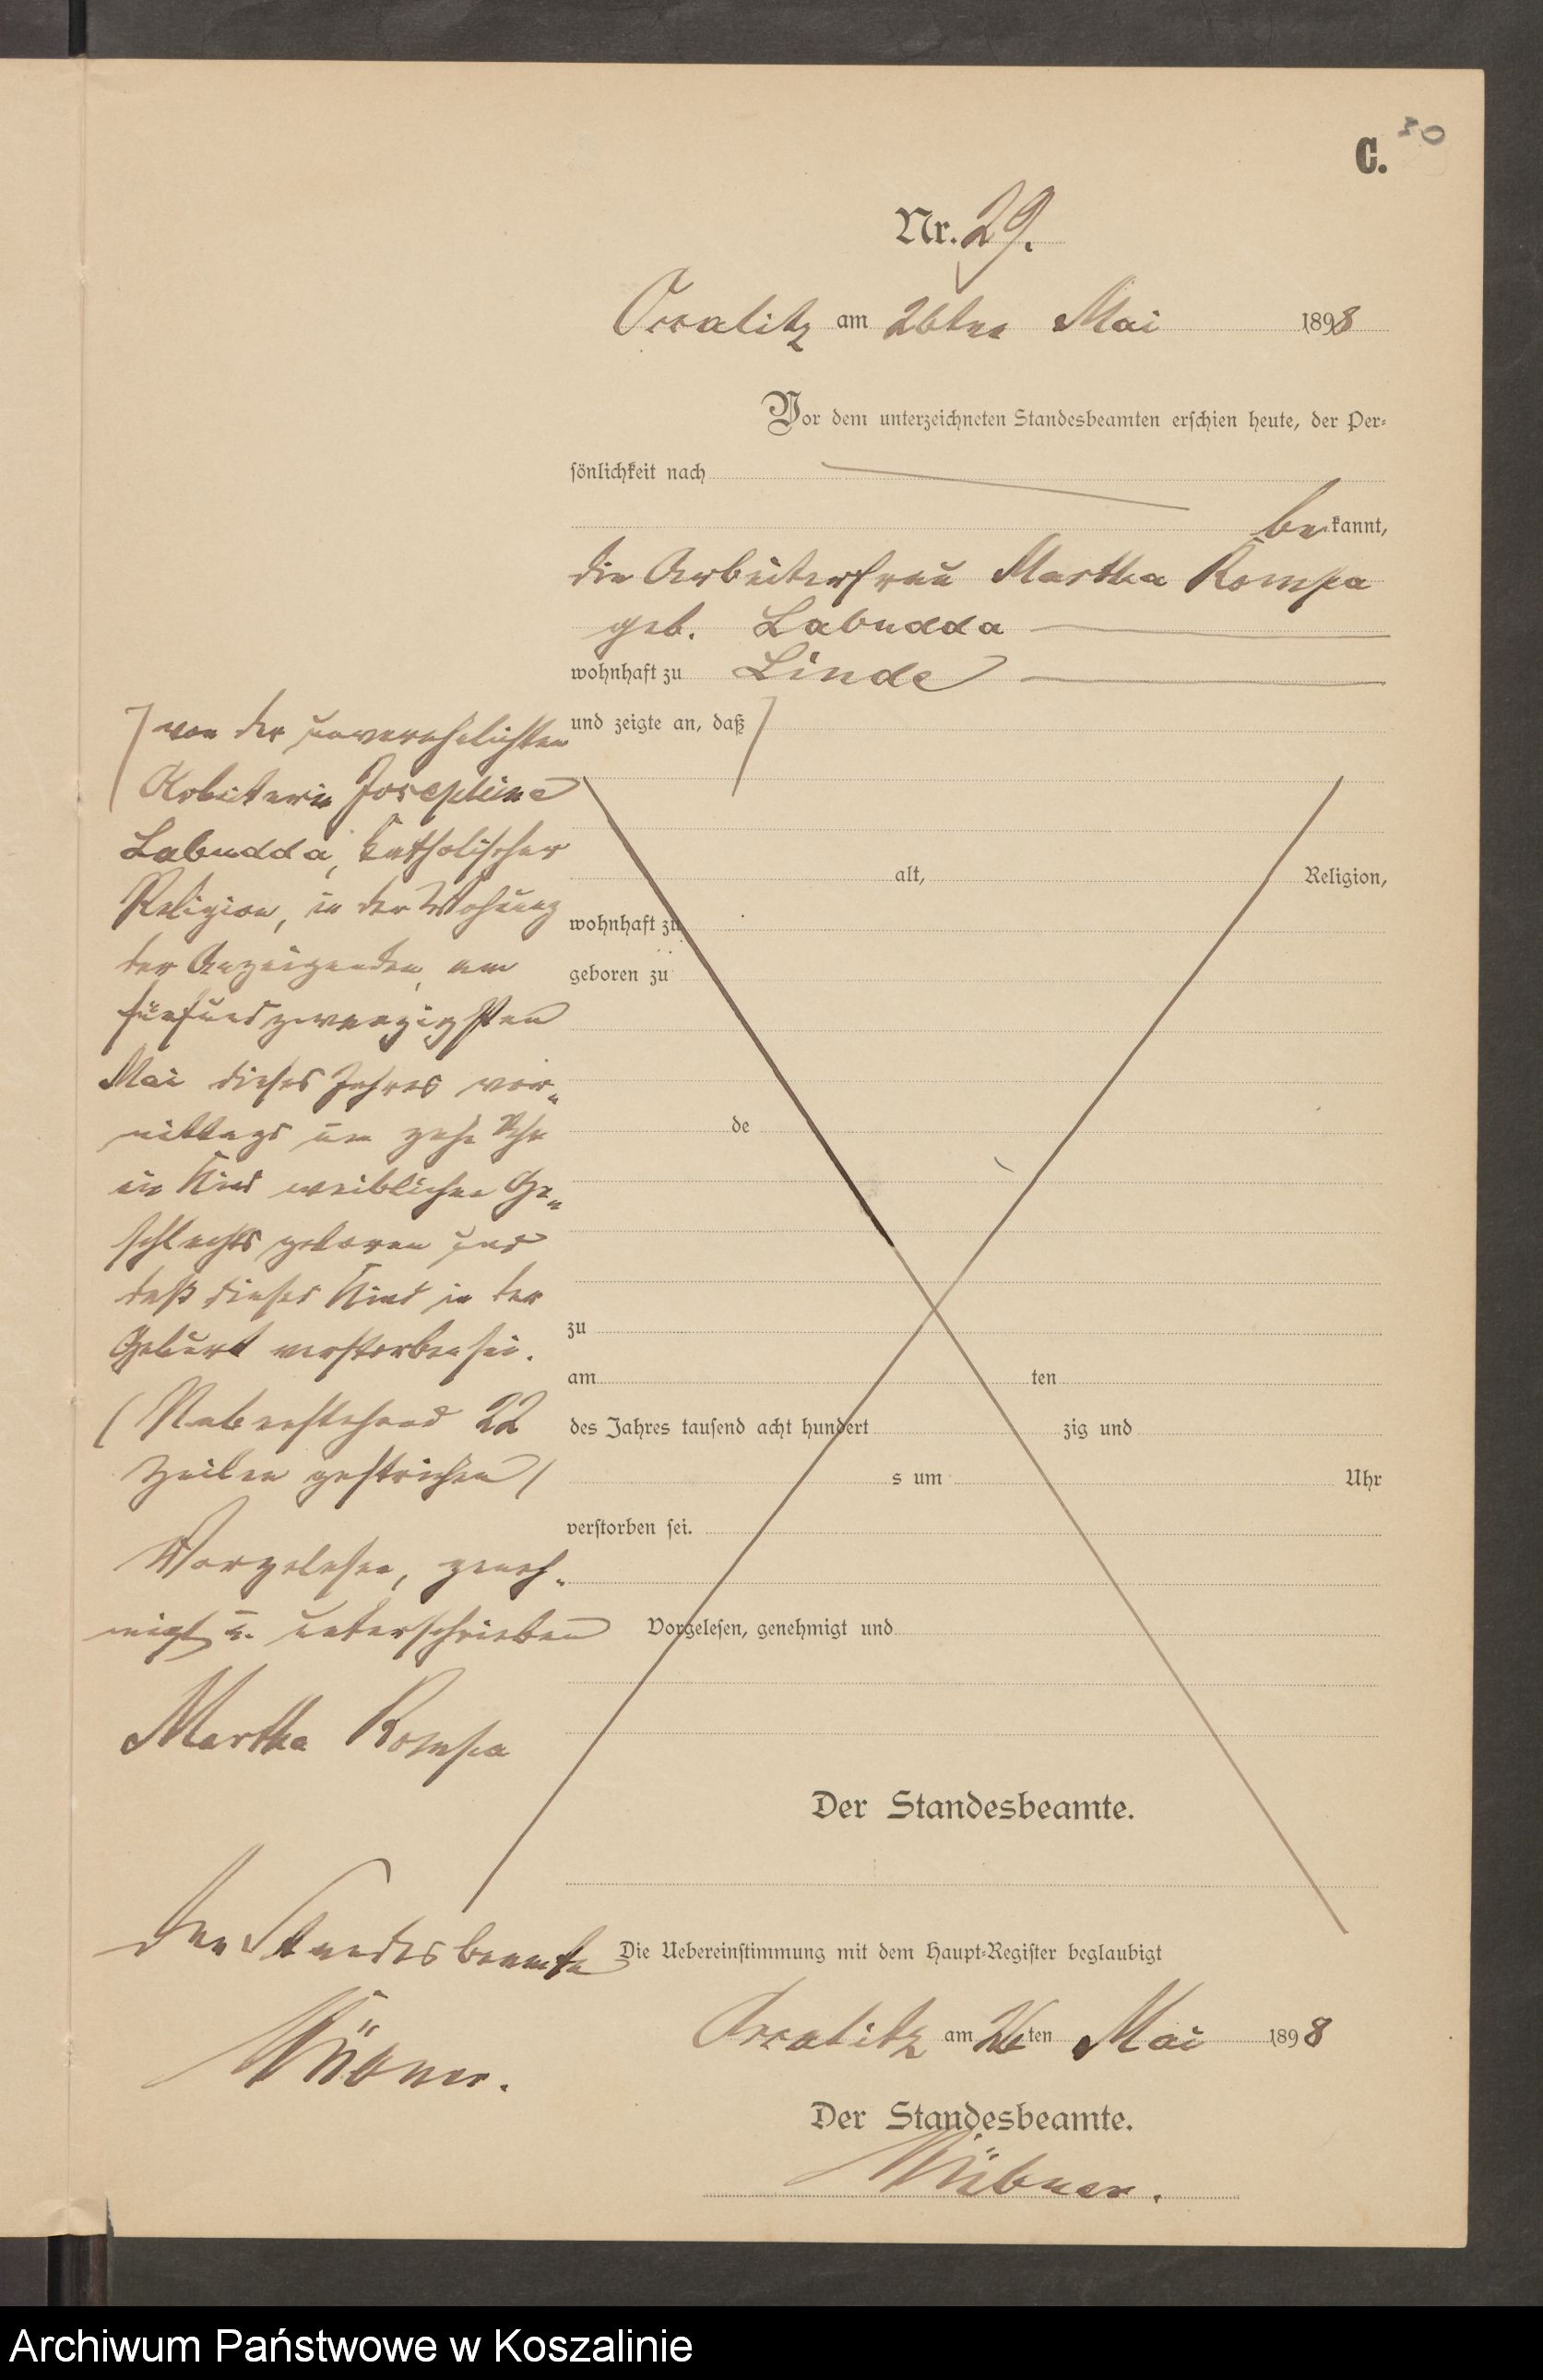 50
C.
Nr. 29.
Ossalitz am 26ten Mai 1898
Vor dem unterzeichneten Standesbeamten erschien heute, der Per-
sönlichkeit nach
bekannt,
die Arbeiterfrau Martha Rompa
geb. Labudda
wohnhaft zu Linde
und zeigte an, daß
von der unverehelichten
Arbeiterin Josephine
Labudda, katholischer
Religion, in der Wohnung
der Anzeigenden, am
fünfundzwanzigsten
Mai dieses Jahres vor-
mittags um zehn Uhr
ein Kind weiblichen Ge-
schlechts geboren und
daß dieses Kind in der
Geburt verstorben sei.
(Nebenstehend 22
Zeilen gestrichen)
Vorgelesen, geneh-
migt u. unterschrieben
Martha Rompa
Der Standesbeamte
alt, Religion,
wohnhaft zu
geboren zu
de
zu
am ten
des Jahres tausend acht hundert zig und
s um Uhr
verstorben sei.
Vorgelesen, genehmigt und
Der Standesbeamte.
Die Uebereinstimmung mit dem Haupt-Register beglaubigt
Ossalitz am 26ten Mai 1898
Der Standesbeamte.
Archiwum Państwowe w Koszalinie